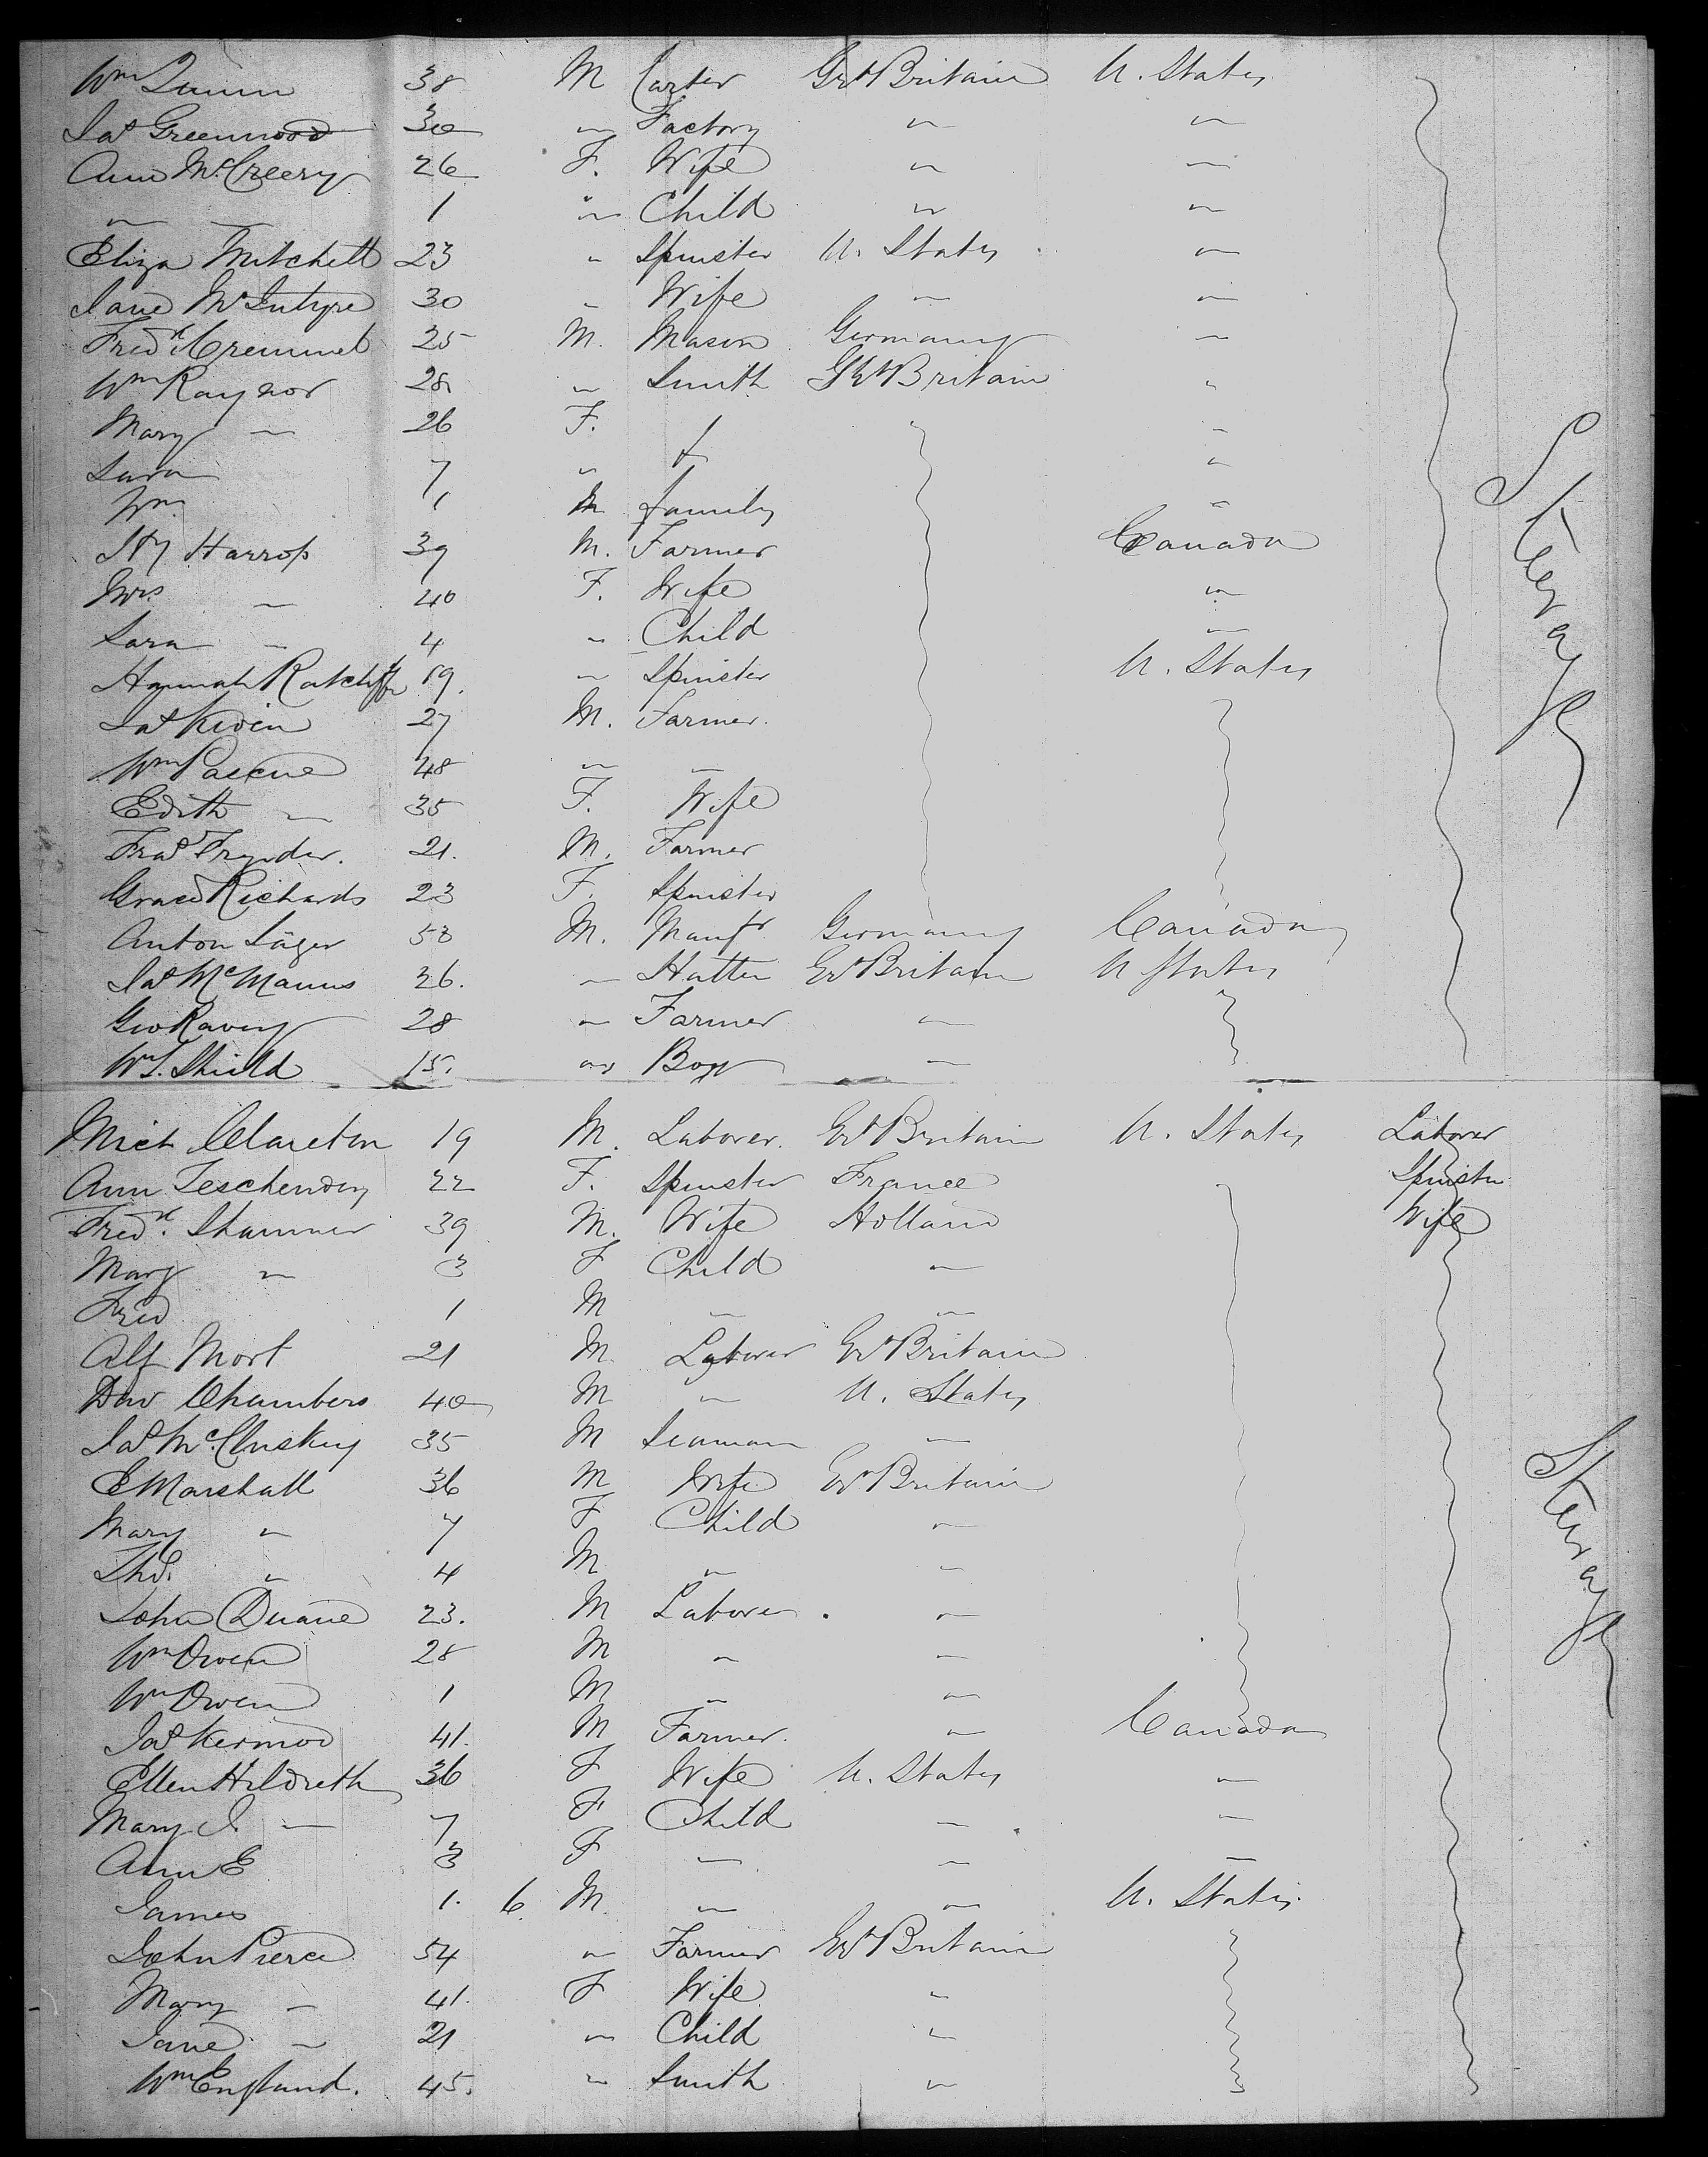 Wm Quinn 38 M Carter Grt Britain U. States
Jas Greenwood 30 " Factory " "
Ann McCreery 26 F. Wife " "
" — 1 " Child " "
Eliza Mitchell 23 " Spinster U. States "
Jane McIntyre 30 " Wife " "
Fredk Cremmel 25 M. Mason Germany "
Wm Raynor 28 " Smith Grt Britain "
Mary — 26 F. "
Sara 7 " "
Wm 1 M family "
Hy Harrop 39 M. Farmer Canada
Mrs — 40 F. Wife "
Sara — 4 " Child "
Hannah Ratcliffe 19. " Spinster U. States
Jas Kewin 27 M. Farmer.
Wm Pascue 48 " "
Edith — 35 F. Wife
Fras 21. M. Farmer
Grace Richards 23 F. Spinster
Anton Säger 53 M. Manfr Germany Canada
Jas McManus 26. " Hatter Grt Britain U States
Geo Raveny 28 " Farmer "
Wm S. Shield 15. " Boy "
Steerage
Mich Clareton 19 M. Laborer. Grt Britain U. States Laborer
Ann 22 F. Spinster France Spinster
Fredk. Shammer 39 M. Wife Holland Wife
Mary " 3 F Child "
Fred 1 M " "
Alf Mort 21 M. Laborer Grt Britain
Dav Chambers 40 M " U. States
Jas McCluskey 35 M Seaman "
E Marshall 36 M Wife Grt Britain
Mary " 7 F Child "
Thos. " 4 M " "
John Duane 23. M Laborer. "
Wm Owen 28 M " "
Wm Owen 1 M " "
Jas Kermod 41. M Farmer. " Canada
Ellen Hildreth 36 F Wife U. States "
Mary J. — 7 F Child " "
Ann E 3 F " " "
James 1. 6. M. " " U. States.
John Pierce 54 " Farmer Grt Britain
Mary — 41. F Wife "
Jane " 21 " Child "
Wm England. 45. " Smith "
Steerage